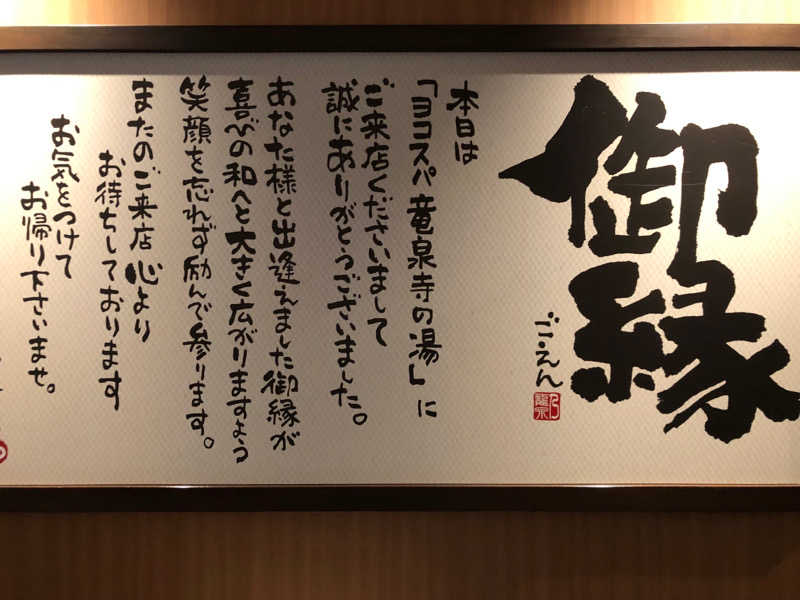 御縁
ごえん
本日は
「ヨコスパ竜泉寺の湯」に
ご来店くださいまして
誠にありがとうございました。
あなた様と出逢えました御縁が
喜びの和へと大きく広がりますよう
笑顔を忘れず励んで参ります。
またのご来店心より
お待ちしております
お気をつけて
お帰り下さいませ。